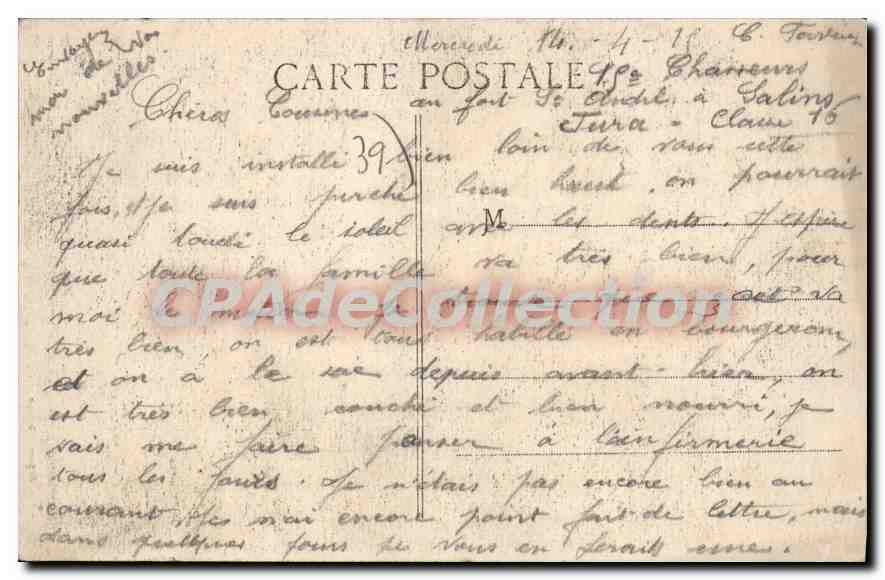 Mercredi 14 - 4 - 15 C.
CARTE POSTALE
Chasseurs
au fort St André à Salins
Jura - Classe 15
Envoyez
moi de vos
nouvelles.
Chères Cousines
39
Je suis installé bien loin de vous cette
fois, et je suis perché bien haut, on pourrait
quasi touché le soleil avec les dents. J'espère
M
que toute la famille va très bien, pour
moi le même je
va
CPAdeCollection
très bien, on est tous habillé en bourgeron,
et on a le sac depuis avant-hier, on
est très bien couché et bien nourri, je
vais me faire panser à l'infirmerie
tous les jours. Je n'étais pas encore bien au
courant et je n'ai encore point fait de lettre, mais
dans quelques jours je vous en ferais une.